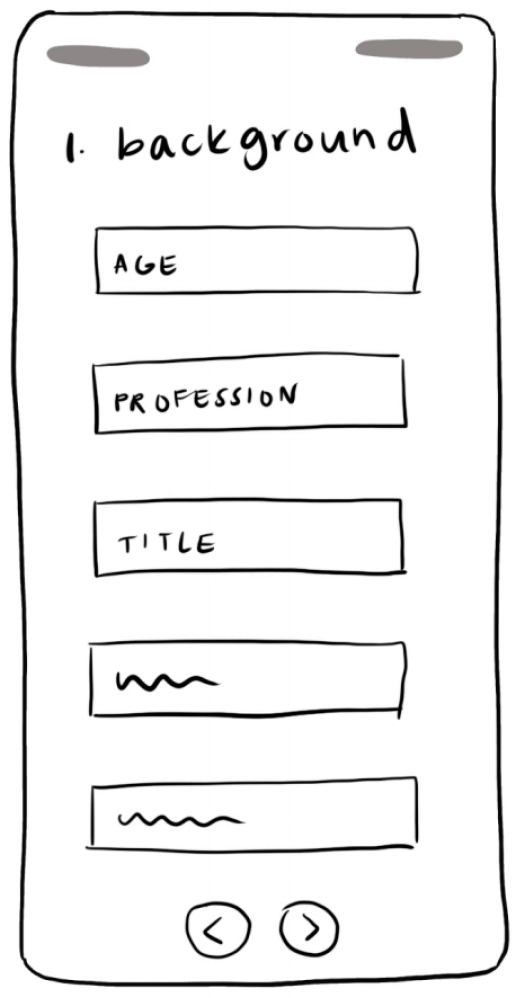 1. background
AGE
PROFESSION
TITLE
< >